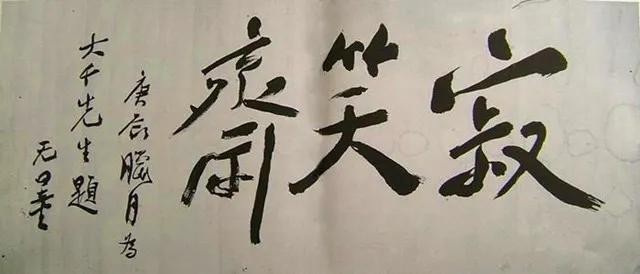 寂笑齋
庚辰臘月為
大千先生題
无量